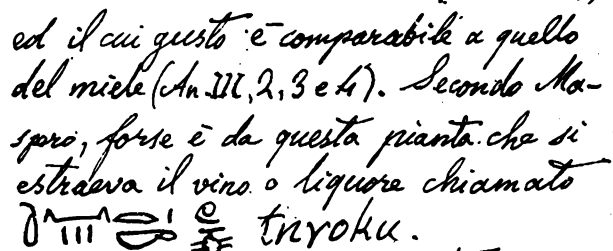 ed il cui gusto è comparabile a quello
del miele (An. III, 2, 3 e 4). Secondo Ma-
spero, forse è da questa pianta che si
estraeva il vino o liquore chiamato
tnroku.